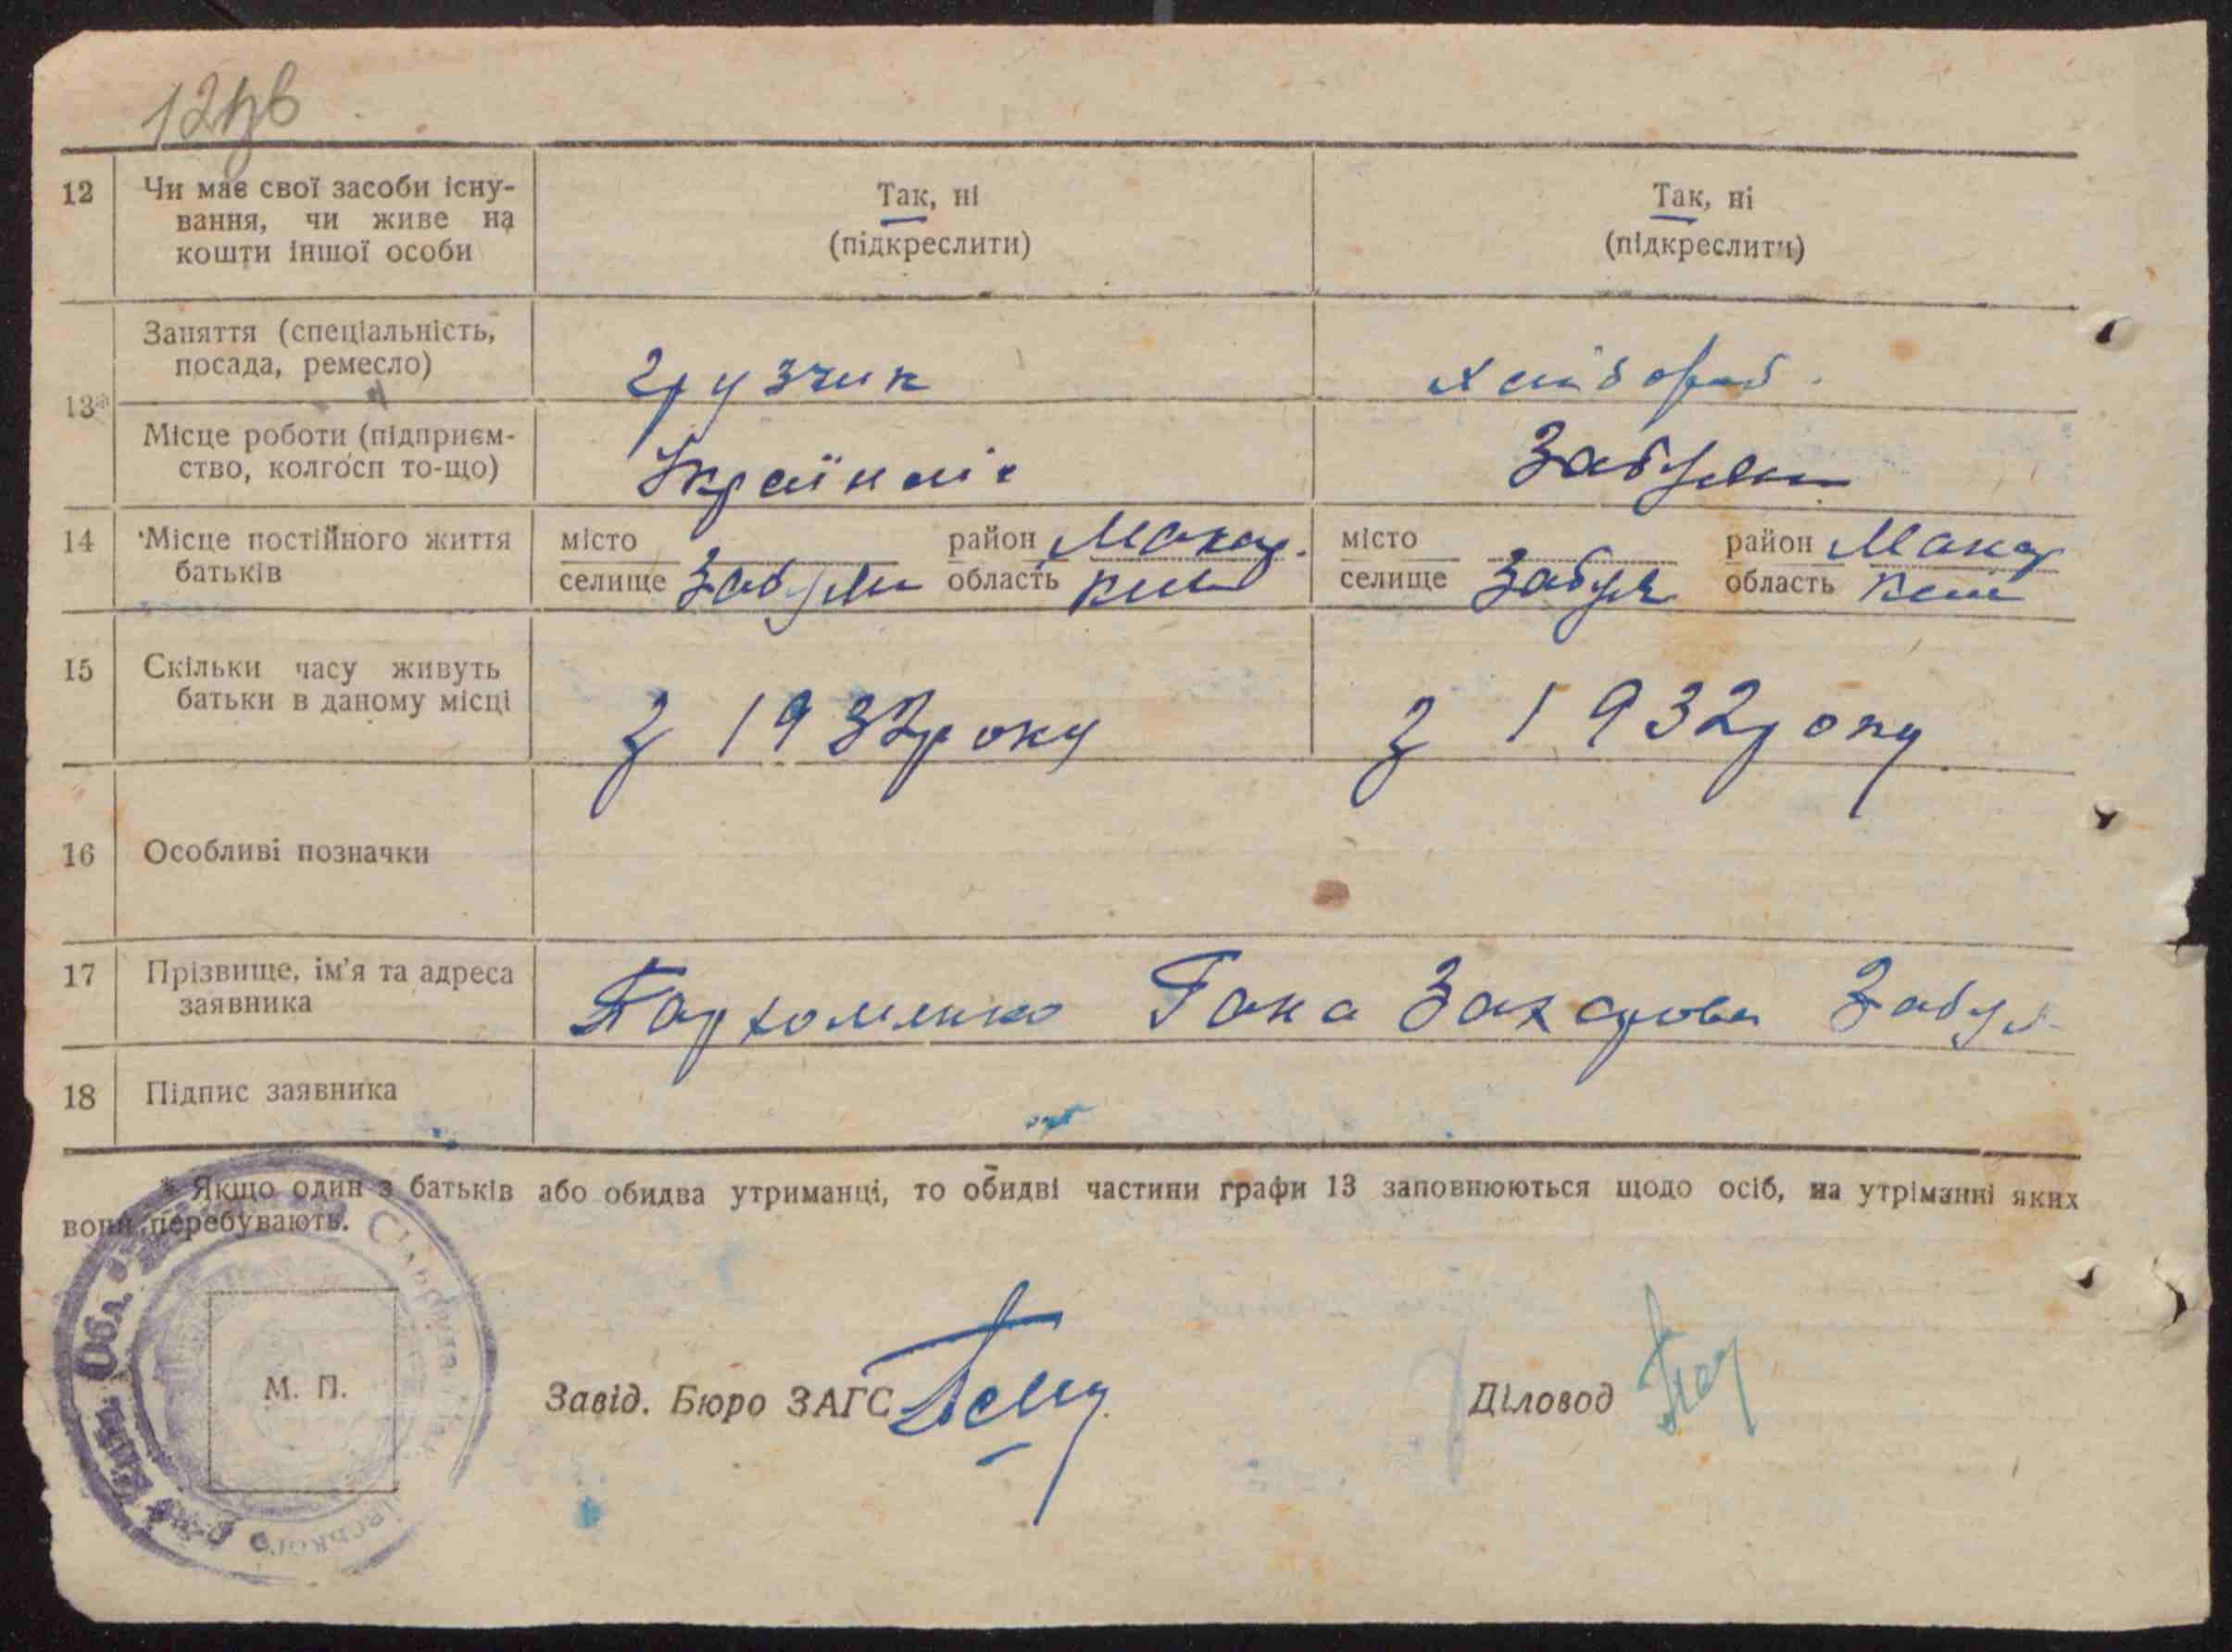 12
Чи має свої засоби існу-
вання, чи живе на
кошти іншої особи
Так, ні
(підкреслити)
Так, ні
(підкреслити)
13*
Заняття (спеціальність,
посада, ремесло)
грузчик
хлібороб.
Місце роботи (підприєм-
ство, колгосп то-що)
Українліс
14
Місце постійного життя
батьків
місто
селище
район Макар.
область Київ
місто
селище
район Макар
область Київ
15
Скільки часу живуть
батьки в даному місці
З 1932 року
З 1932 року
16
Особливі позначки
17
Прізвище, ім'я та адреса
заявника
Пархоменко
18
Підпис заявника
* Якщо один з батьків або обидва утриманці, то обидві частини графи 13 заповнюються щодо осіб, на утріманні яких
вони перебувають.
Обл.
М. П.
Завід. Бюро ЗАГС
Діловод